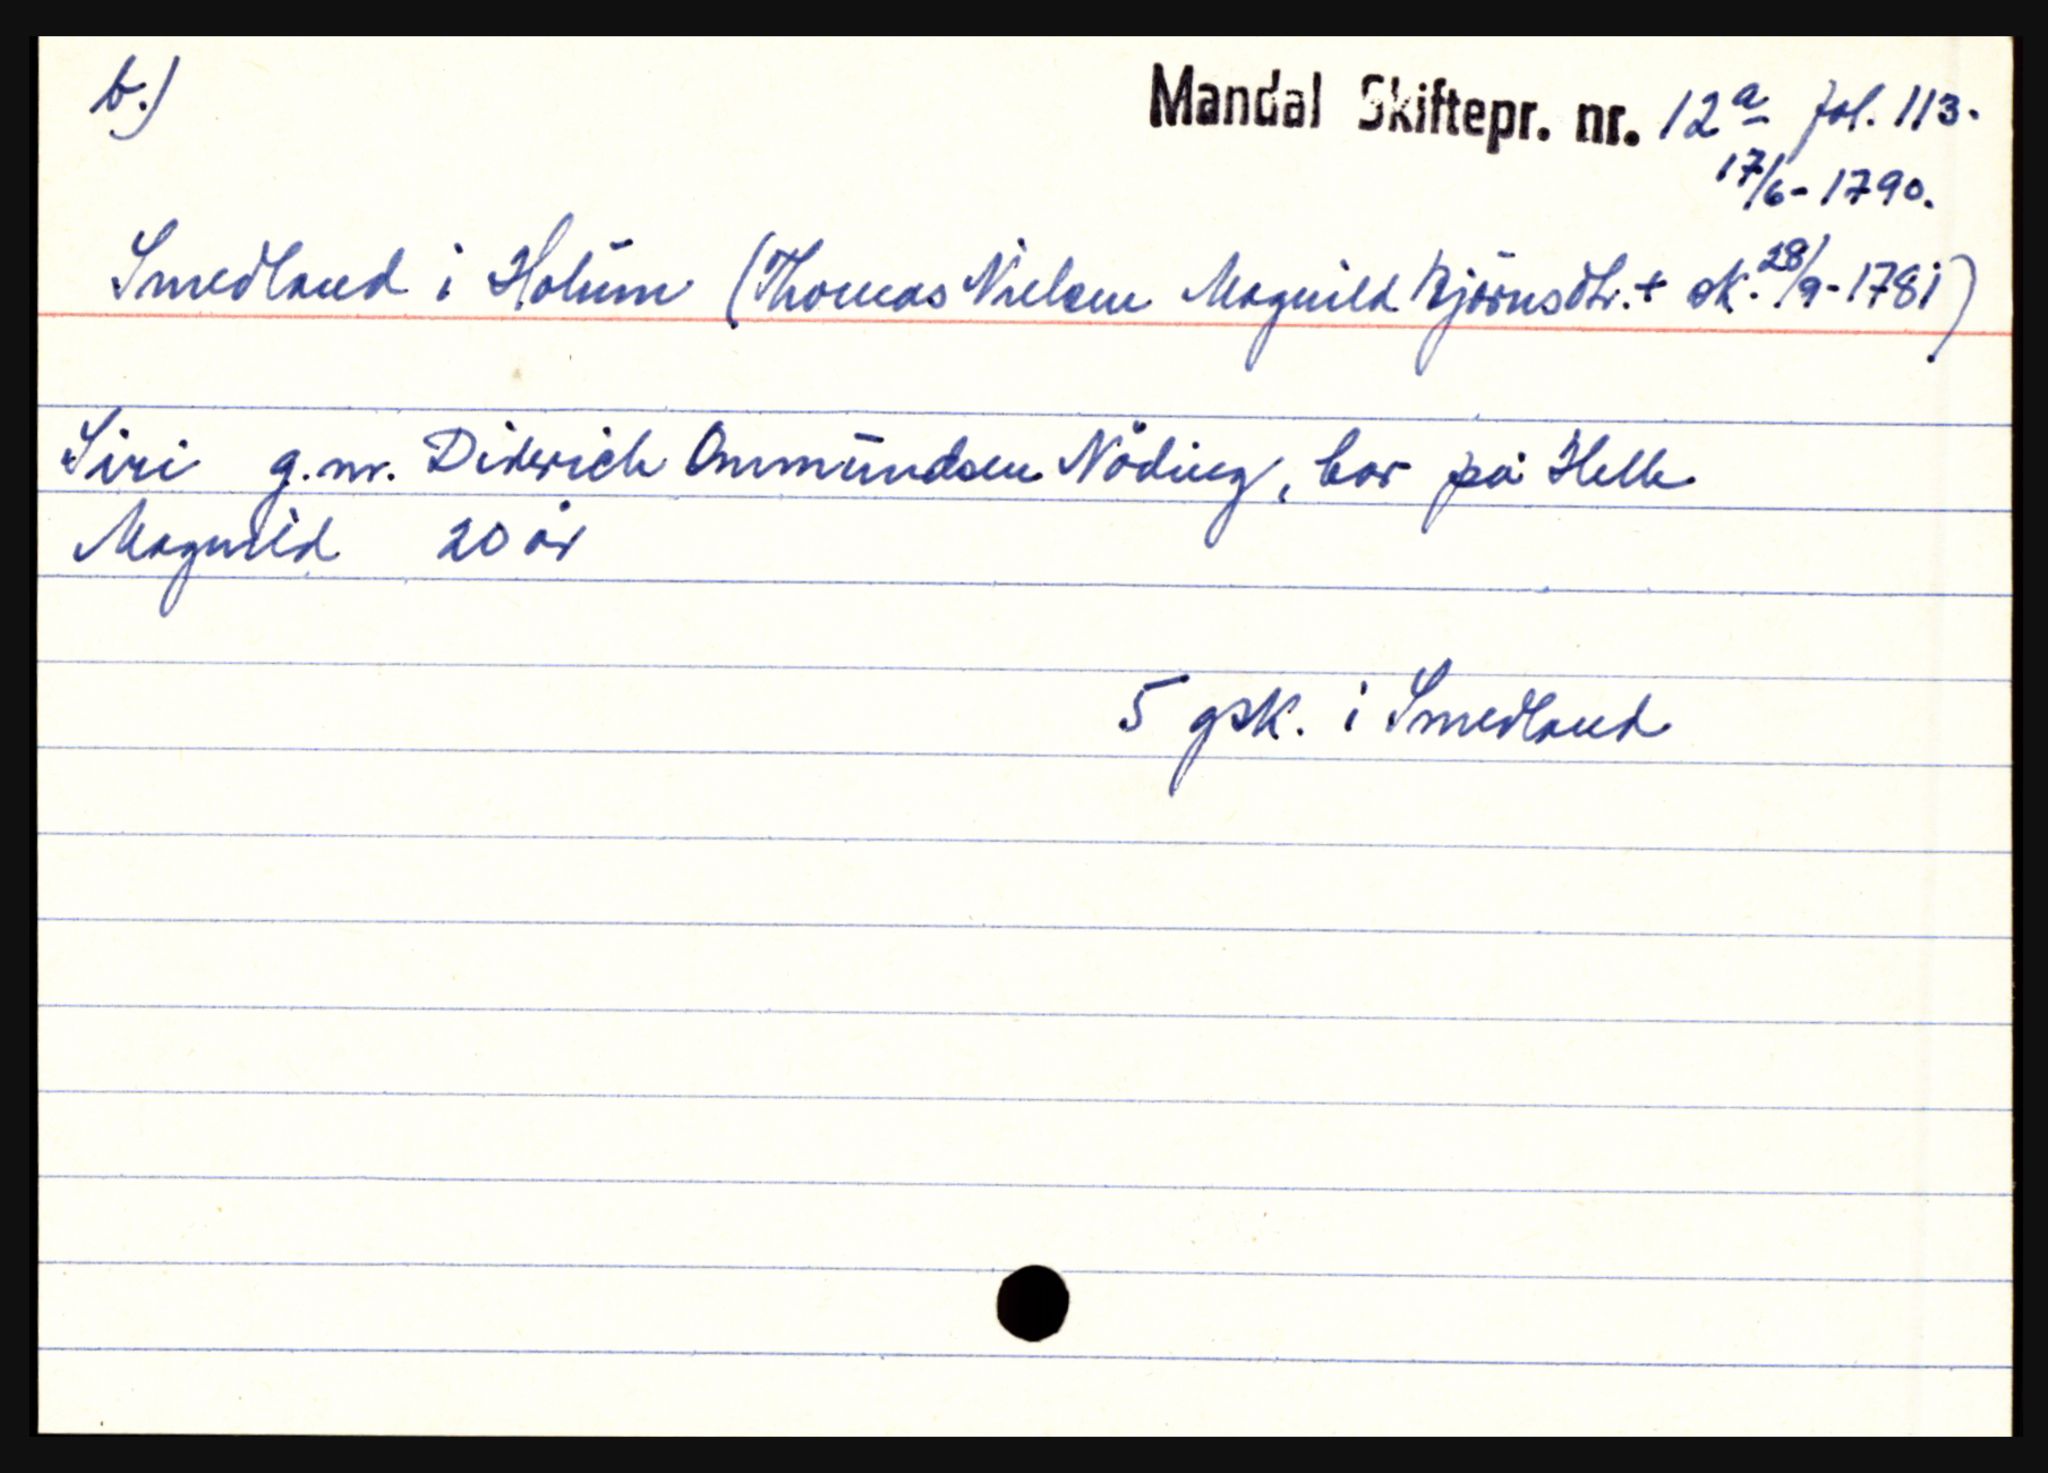 b.)
Mandal Skiftepr. nr. 12a fol. 113.
17/6-1790.
Smedland i Holum (Thomas Nielsen Magnild Bjørnsdtr. + sk. 28/9-1781)
Siri g.m. Diderich Ommundsen Nöding, bor på Helle
Magnild 20 år
5 gsk. i Smedland